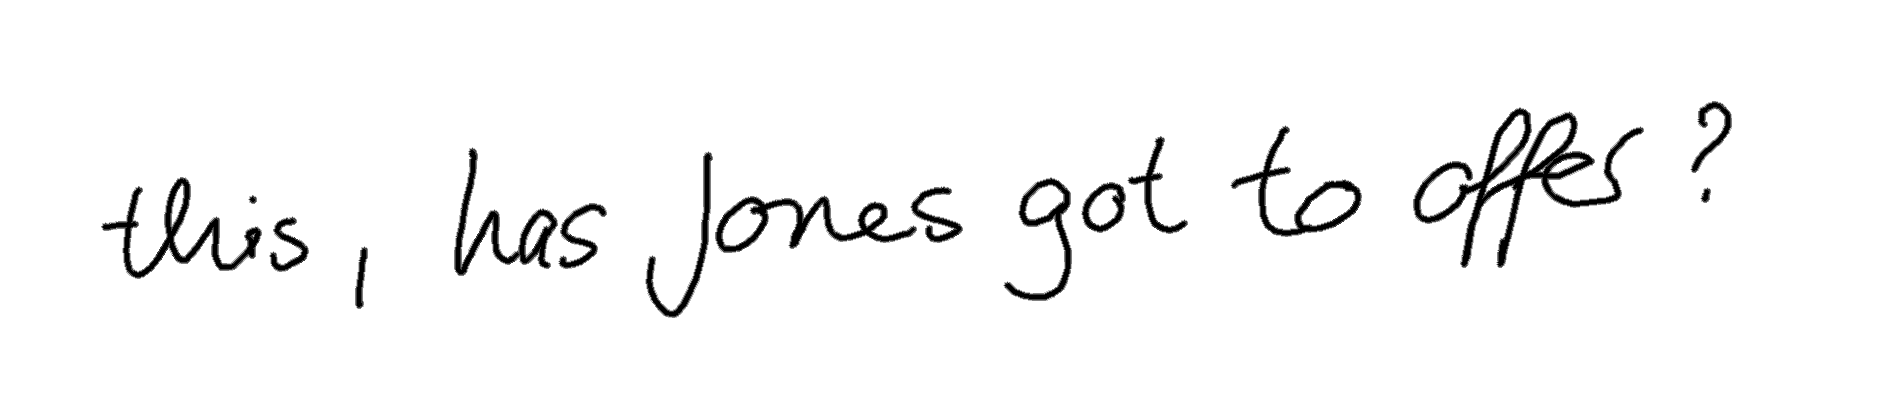 this, has Jones got to offer?